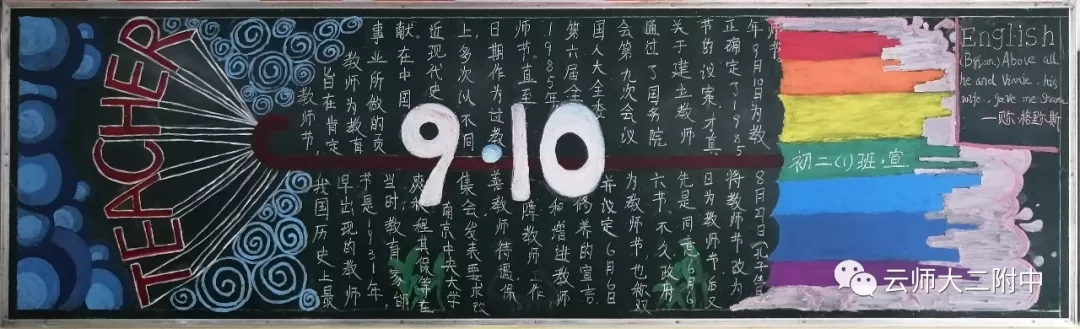 TEACHER
教师节，
旨在肯定
教师为教育
事业所做的贡
献。在中国
近现代史
上，多次以不同
日期作为过教
师节。直至
1985年
第六届全
国人大全委
会第九次会议
通过了国务院
关于建立教师
节的议案，才真
正确定了1985
年9月10日为教
师节。
9·10
我国历史上最
早出现的教师
节是1931年，
当时，教育家邰
爽秋、程其保等在
南京中央大学
集会，发表要求改
善教师待遇，保
障教师工作
和增进教师
修养的宣言
并议定6月6日
为教师节，也称双
六节。不久，政府
先是同意6月6
日为教师节，后又
将教师节改为
8月27日(孔子生日
初二(1)班·宣
English
(Brian) Above all,
he and Vinnie, his
wife, gave me
云师大二附中